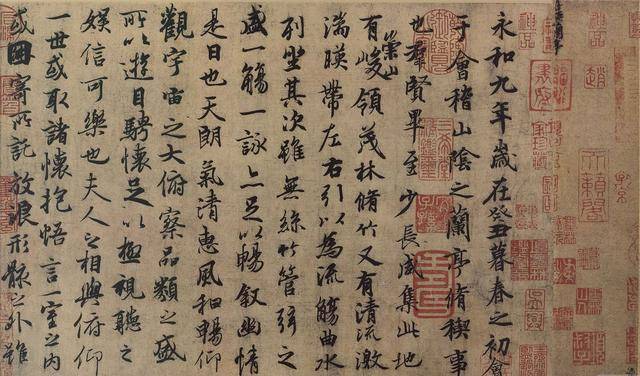 天籟閣
永和九年歲在癸丑暮春之初會
于會稽山陰之蘭亭脩稧事
也羣賢畢至少長咸集此地
有崇山峻領茂林脩竹又有清流激
湍暎帶左右引以為流觴曲水
列坐其次雖無絲竹管弦之
盛一觴一詠亦足以暢敘幽情
是日也天朗氣清惠風和暢仰
觀宇宙之大俯察品類之盛
所以遊目騁懷足以極視聽之
娛信可樂也夫人之相與俯仰
一世或取諸懷抱悟言一室之內
或因寄所託放浪形骸之外雖